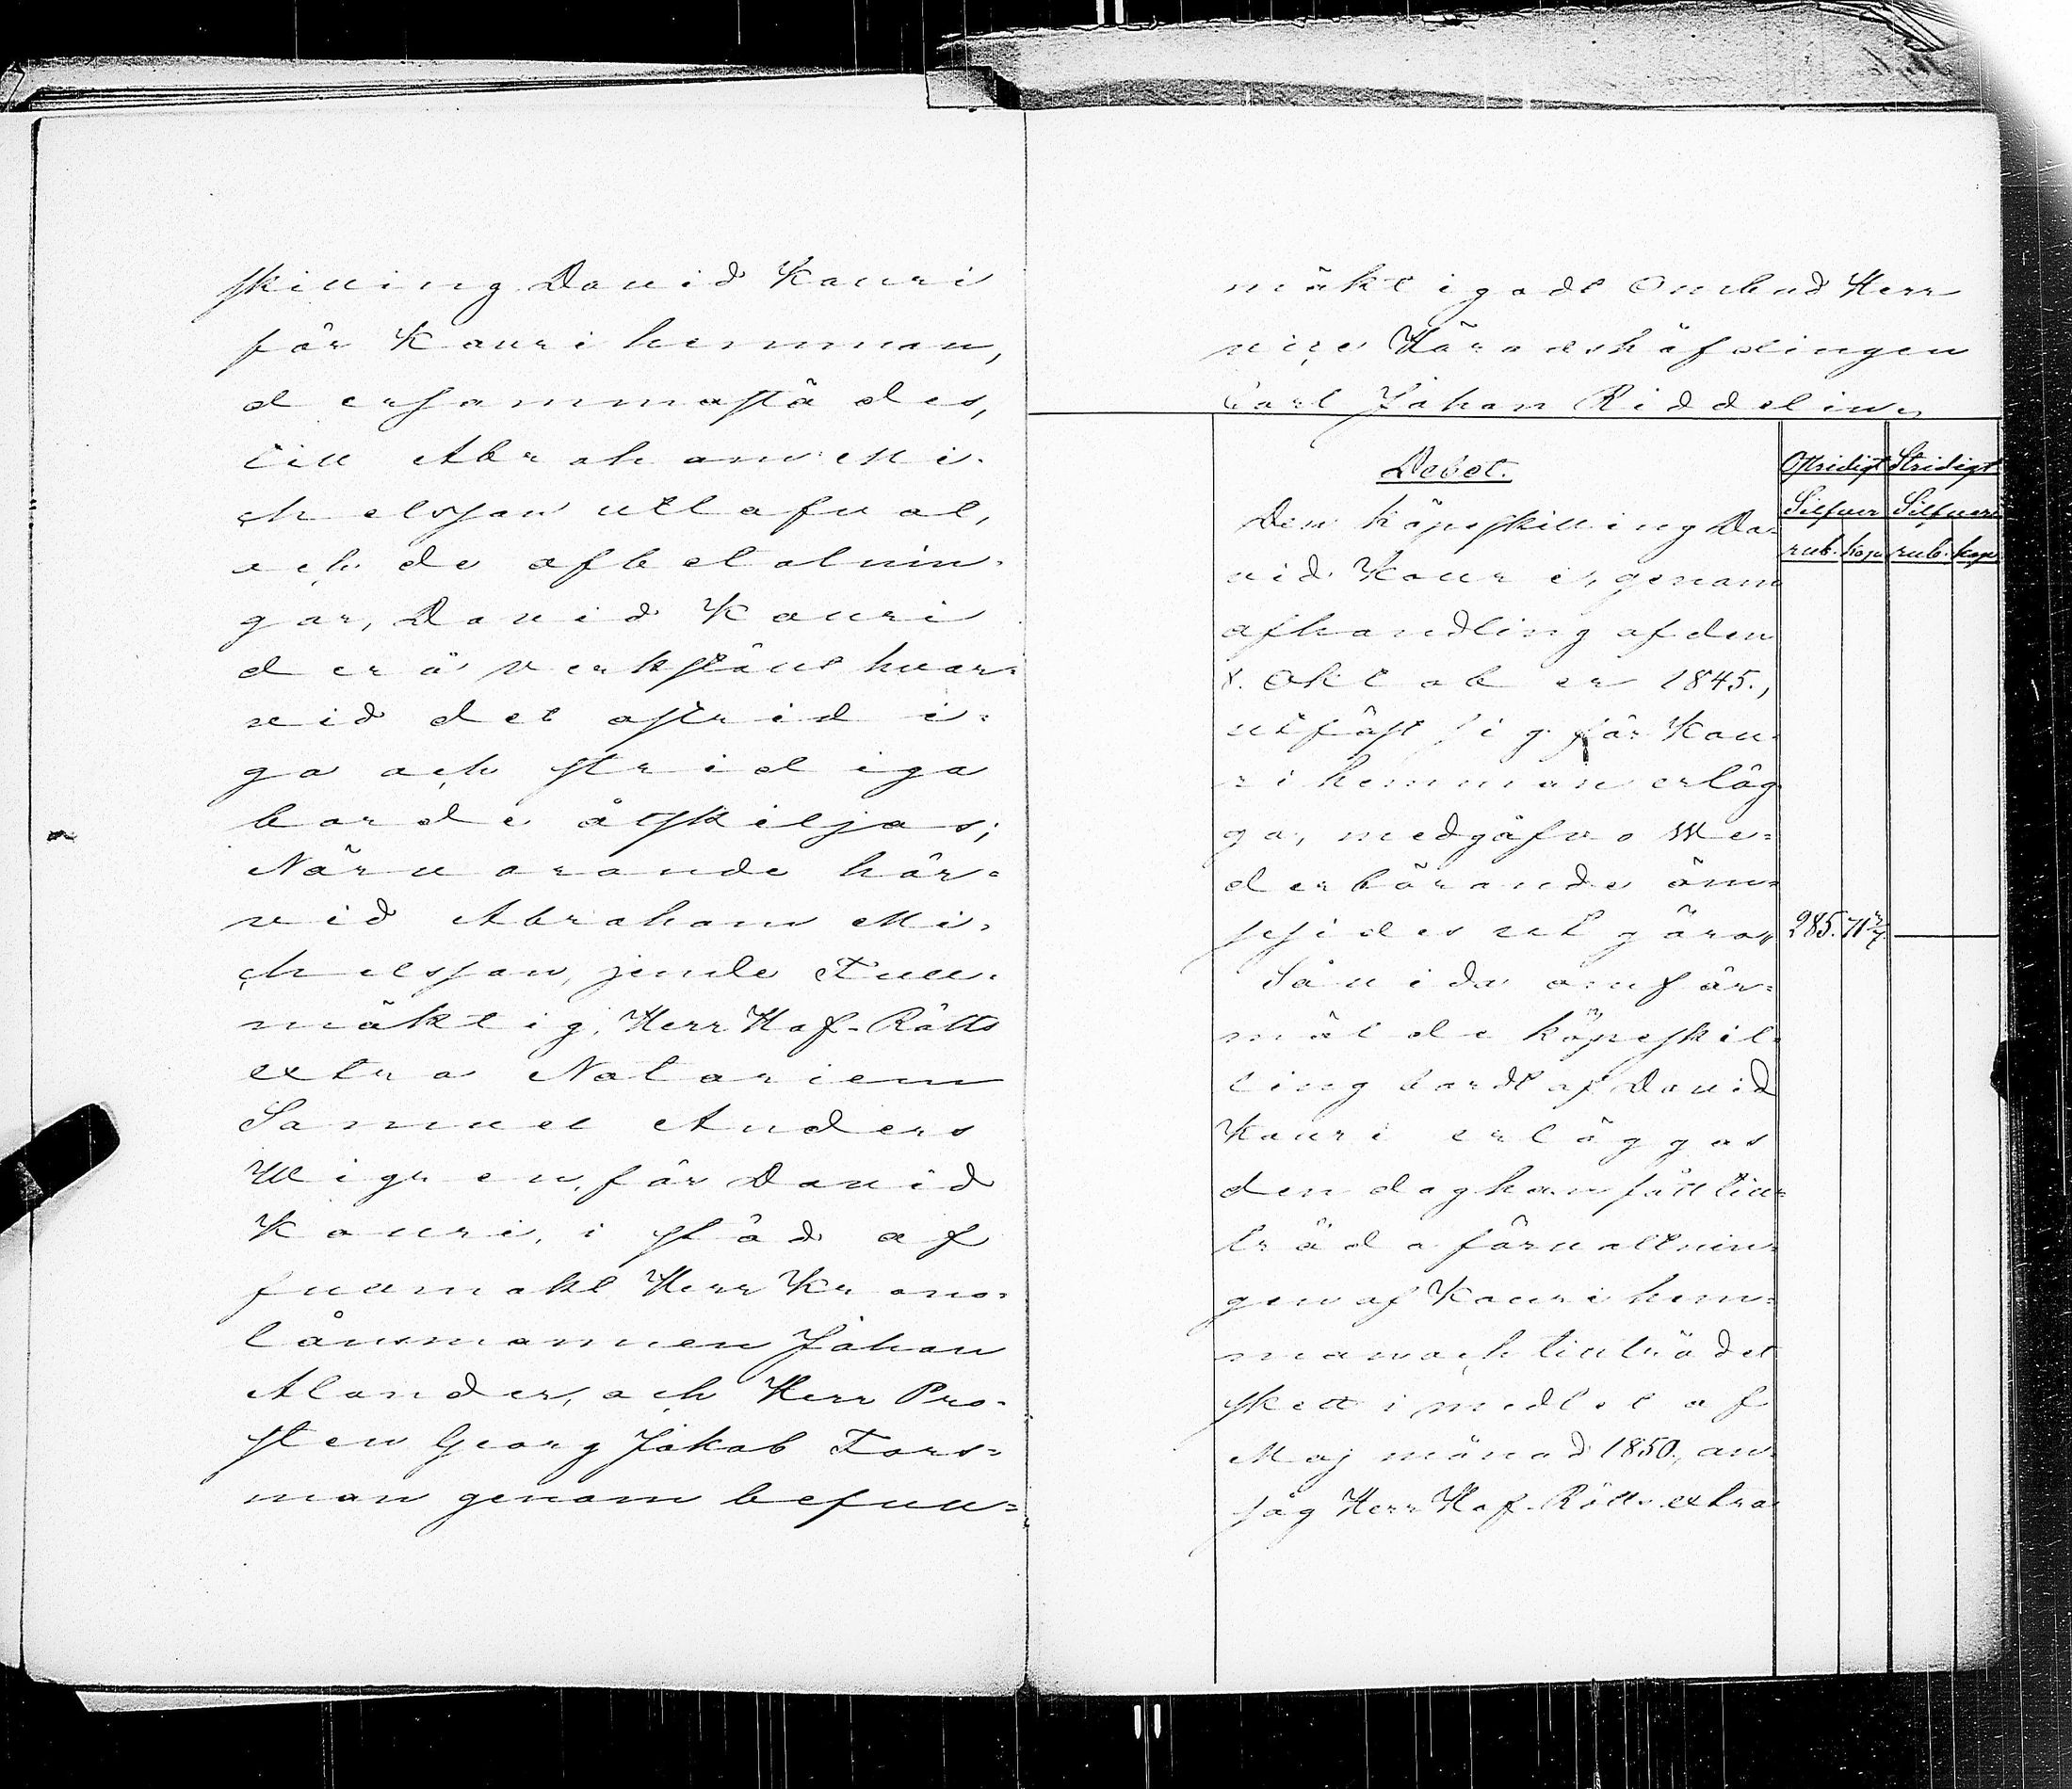 skilling David Kauri
för Kauri hemman,
dersammastädes,
till Abraham Mi-
chelsson utlåfvat,
och de afbetalnin-
gar, David Kauri
derå verkstält hvar-
vid det ostridi-
ga och stridiga
borde åtskiljas;
Närvarande här-
vid Abraham Mi-
chelsson, jemte Full-
mäktig, Herr Hof-Rätts
extra Notarien
Samuel Anders
Wigren, för David
Kauri, i stöd af
fullmakt Herr Krono-
länsmannen Johan
Alander, och Herr Pro-
sten Georg Jakob Fors-
man genom befull-
mäktigadt Ombud Herr
vice Häradshöfdingen
Carl Johan Riddelin,
Debet.
Ostridigt Stridigt
Silfver Silfver
rub. kop rub. kop
Den köpeskilling Da-
vid Kauri, genom
afhandling af den
8. Oktober 1845.,
utfäst sig för Kau-
ri hemman erläg-
ga, medgåfvo We-
derbörande öm-
sesides utgöra 285. 71 3/7
Såvida omför-
mälde köpeskil-
ling bordt af David
Kauri erläggas
den dag han fått till-
träda förvaltnin-
gen af Kauri hem-
man och tillträdet
skett i medlet af
Maj månad 1850., an-
såg Herr Hof-Rätts extra